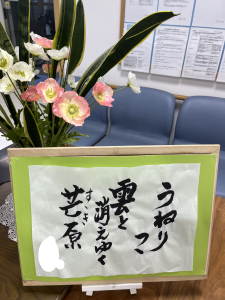 うねりつゝ
雲と消えゆく
すすき
芒原